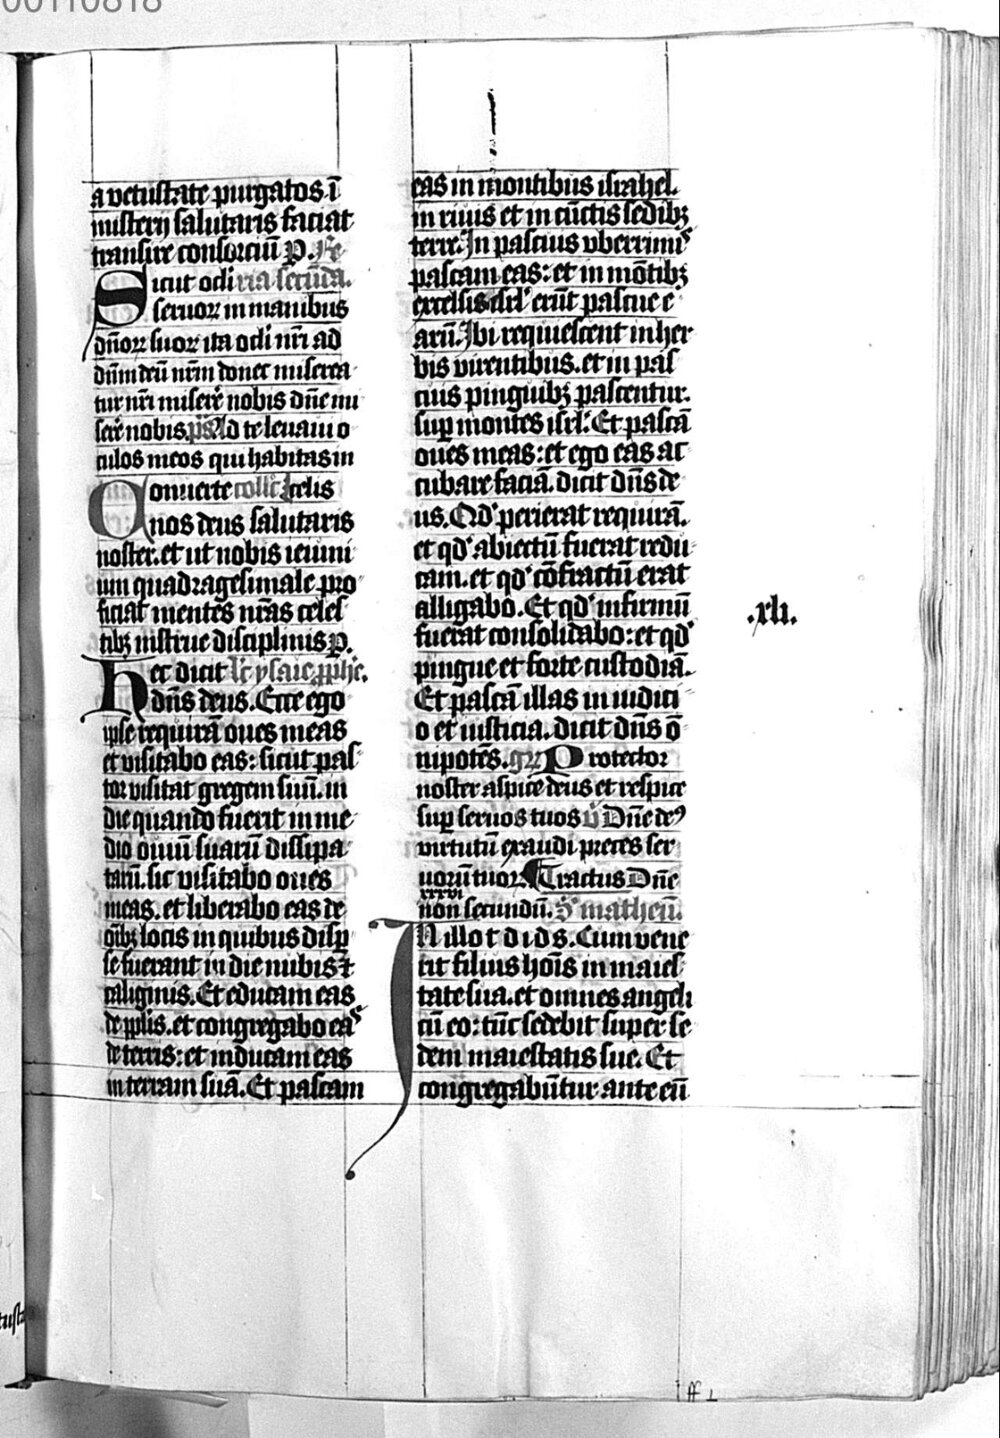 00110818
a vetustate purgatos. ī
misterij salutaris faciat
transire consorciū P. Fe
Sicut ocli ria secūda.
seruoꝝ in manibus
dn̄oꝝ suoꝝ ita ocli nr̄i ad
dn̄m deū nr̄m donec miserea
tur nr̄i misere͛ nobis dn̄e mi
sere͛ nobis. ps̄ Ad te leuaui o
culos meos qui habitas in
Conuerte coll̄c celis
nos deus salutaris
noster. et ut nobis ieiuni
um quadragesimale pro
ficiat mentes nr̄as celes
tibꝫ instrue disciplinis p.
Hec dicit lc̄ ysaie ꝓph̄e.
dn̄s deus. Ecce ego
ipse requirā oues meas
et visitabo eas: sicut pas
tor visitat gregem suū. in
die quando fuerit in me
dio ouiū suarū dissipa
tarū. sic visitabo oues
meas. et liberabo eas de
oībꝫ locis in quibus disꝑ
se fuerant in die nubis ⁊
caliginis. Et educam eas
de pp̄lis. et congregabo eas
de terris: et inducam eas
in terram suā. Et pascam
eas in montibus israhel.
in riuis et in cūctis sedibꝫ
terre. In pascuis vberrimis
pascam eas: et in mōtibꝫ
excelsis isrl͛ erūt pascue e
arū. Ibi requiescent in her
bis virentibus. et in pas
cuis pinguibꝫ pascentur.
suꝑ montes isrl͛. Et pascā
oues meas: et ego eas ac
cubare faciā. dicit dn̄s de
us. Qd͛ perierat requirā.
et qd͛ abiectū fuerat redu
cam. et qd͛ cōfractū erat
alligabo. Et qd͛ infirmū
fuerat consolidabo: et qd͛
pingue et forte custodiā.
Et pascā illas in iudici
o et iusticia. dicit dn̄s ō
nipotēs. gr̄ Protector
noster aspice deus et respice
suꝑ seruos tuos v̄ Dn̄e deꝰ
virtutū exaudi preces ser
uorū tuoꝝ. Tractus Dn̄e
xxxvi
non secundū. S̄ matheū.
IN illo t d i d s. Cum vene
rit filius hoīs in maies
tate sua. et omnes angeli
cū eo: tūc sedebit super se
dem maiestatis sue. Et
congregabūtur ante eū
.xli.